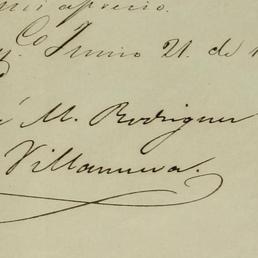 mi aprecio.
Co Junio 21. de
é M. Rodriguez
Villanueva.